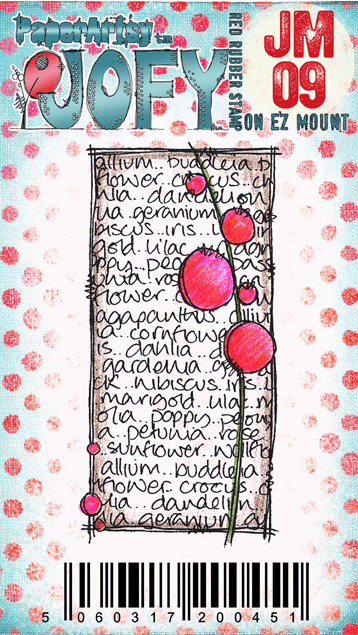 PaperArtsy tm
JOFY
RED RUBBER STAMP
ON EZ MOUNT
JM
09
allium.. buddleia b
flower.. crocus.. ch
lia.. dandelion
ua geranium
biscus.. iris.. li
gold.. lilac
ppy.. peo
nia.. rose
flower.. c
agapanthus
a.. cornflow
is.. dahlia.. d
gardenia
ck.. hibiscus.. iri
marigold.. lila
ola.. poppy.. peon
a.. petunia.. rose
sunflower.. wallfl
allium.. buddleia
flower.. crocus c
lia.. dandelion
lia geranium
5 060317 200451